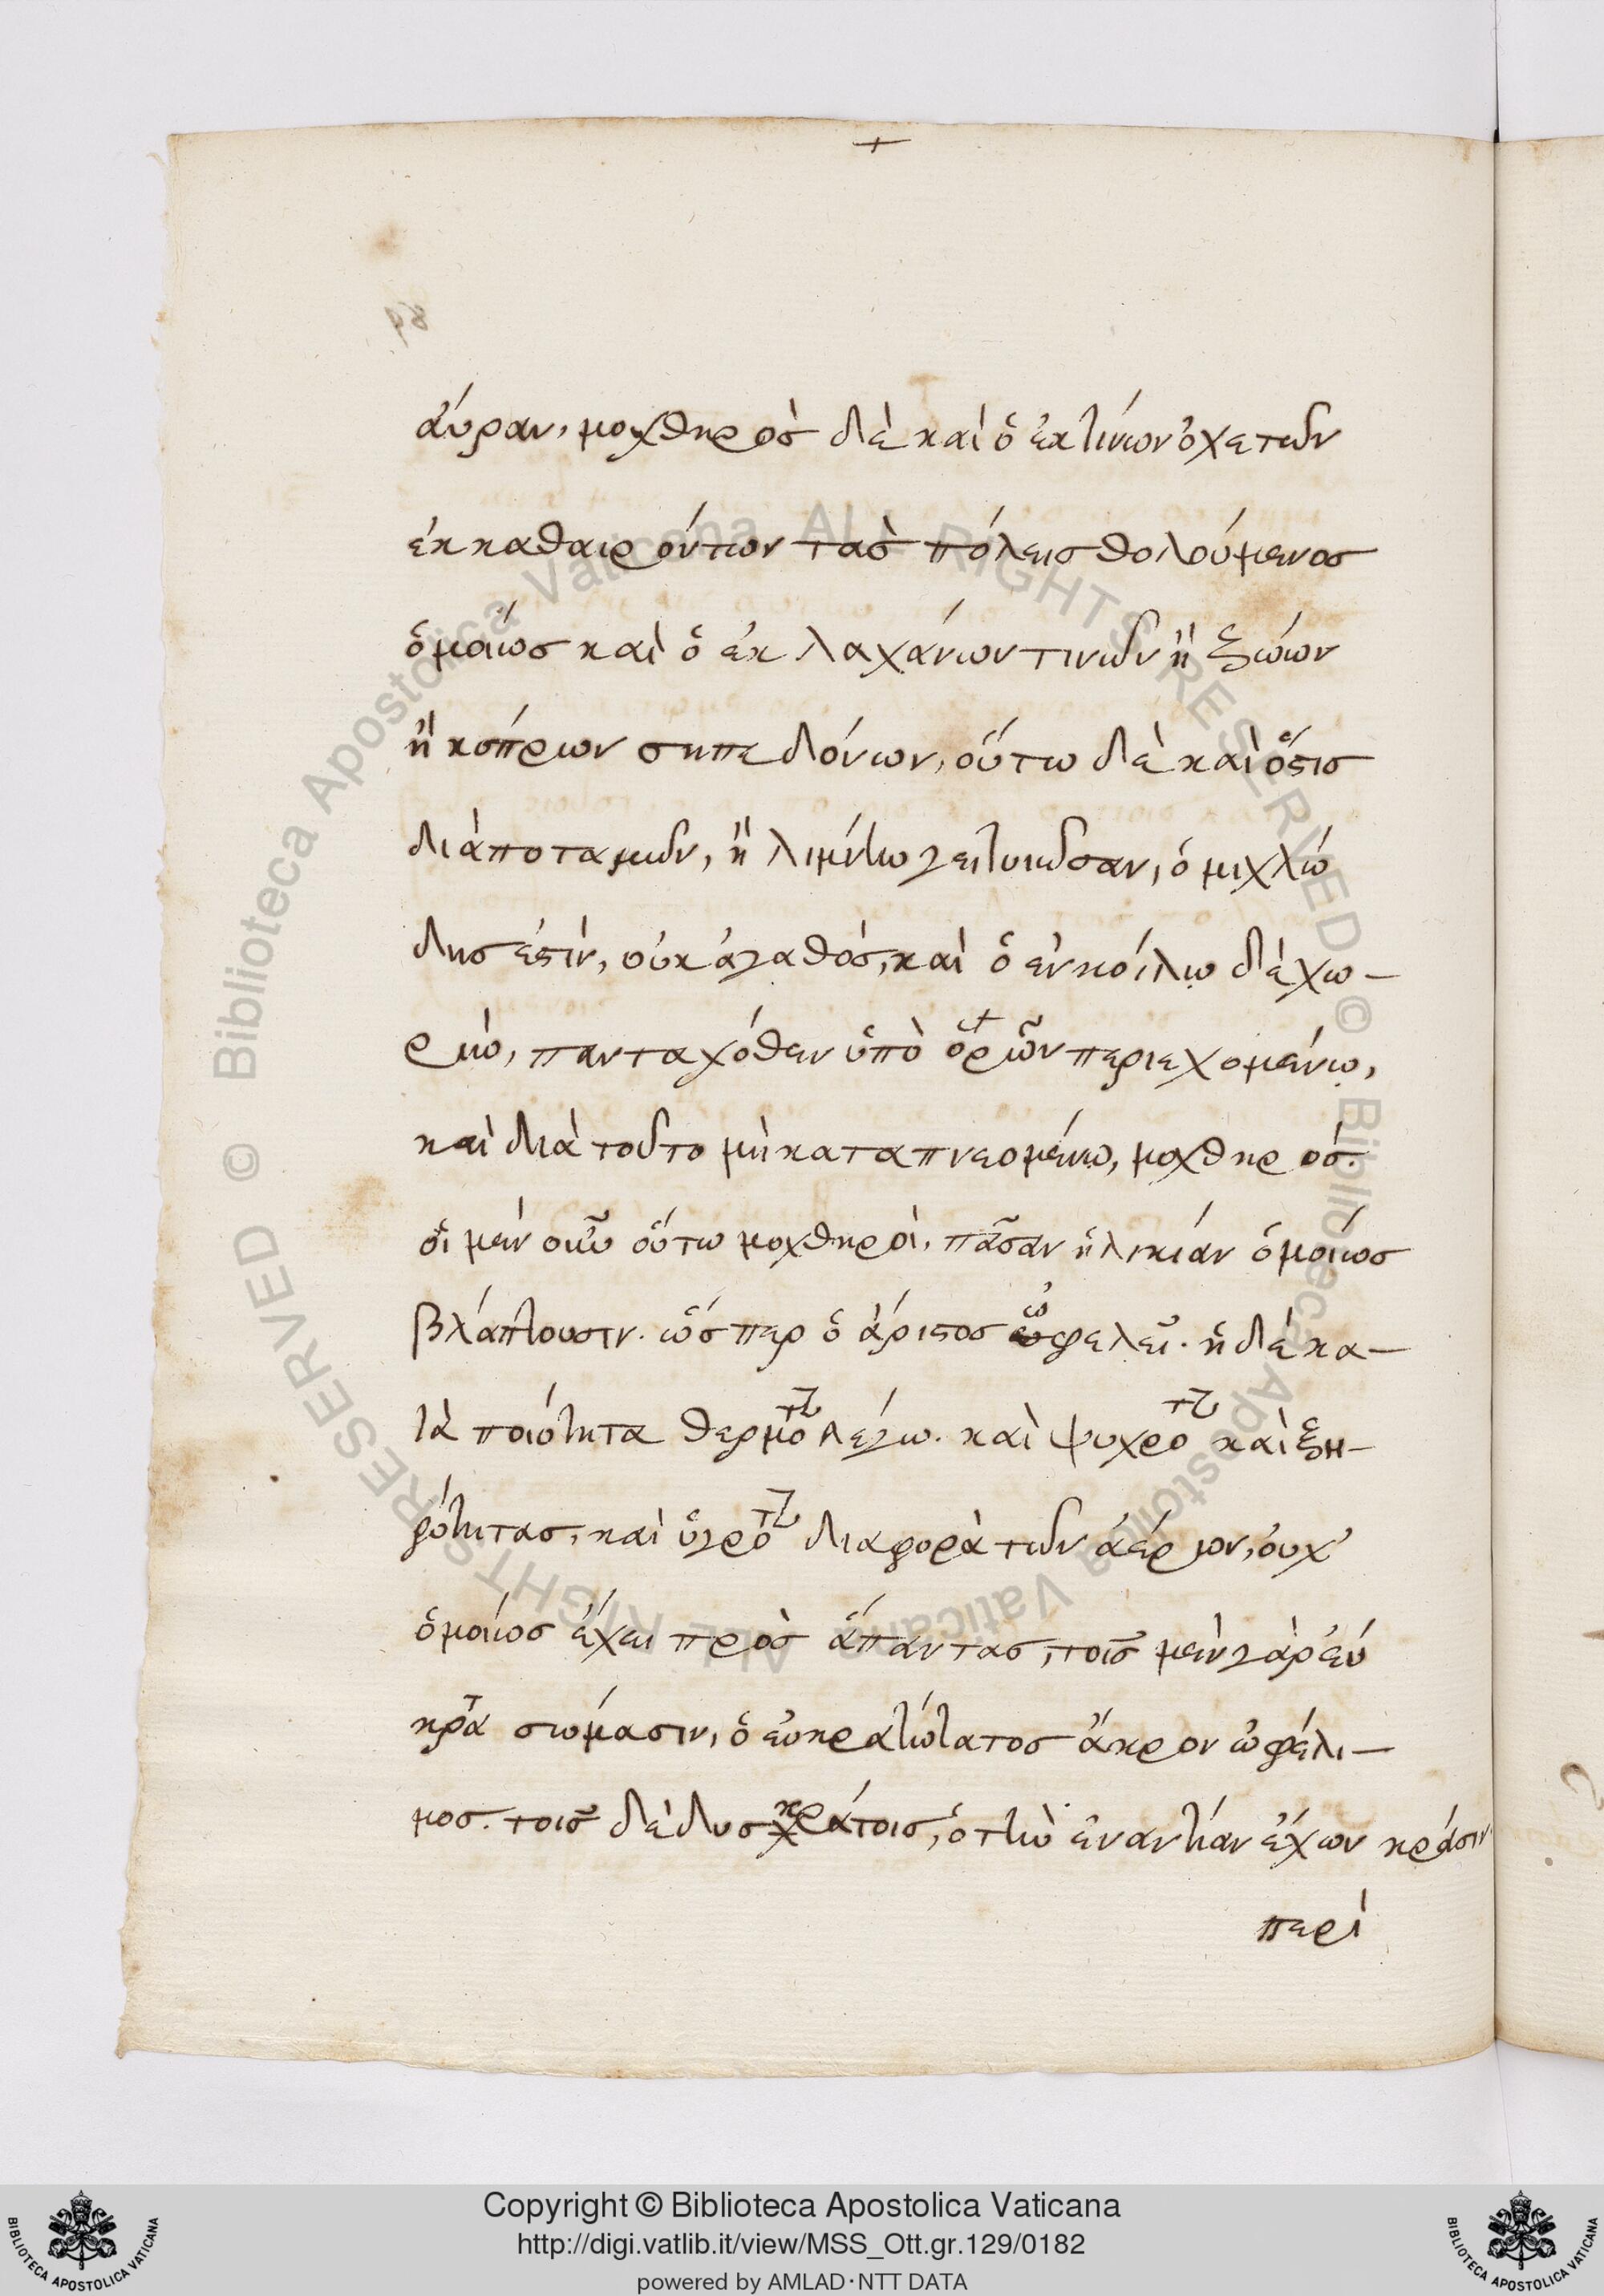 +
αύραν, μοχθηρὸς δὲ καὶ ὁ ἐκ τίνων ὀχετῶν
ἐκκαθαιρόντων τὰς πόλεις θολούμενος
ὁμοίως καὶ ὁ ἐκ λαχάνων τινῶν ἢ ζώων
ἢ κοπρίων σηπεδόνων, οὕτω δὲ καὶ ὅστις
διὰ ποταμῶν, ἢ λιμνὴν γειτνιῶσαν, ὁμιχλώ
δης ἐστὶν, οὐκ ἀγαθός, καὶ ὁ ἐν κοίλῳ δὲ χω-
ρίῳ, πανταχόθεν ὑπὸ ὁρῶν περιεχομένῳ,
καὶ διὰ τοῦτο μὴ καταπνεομένῳ, μοχθηρός.
οἱ μὲν οὖν οὕτω μοχθηροὶ, πᾶσαν ἡλικίαν ὁμοίως
βλάπτουσιν. ὥσπερ ὁ ἄριστος ὠφελεῖ. ἡ δὲ κα-
τὰ ποιότητα θερμοτ λέγω. καὶ ψυχροτ καὶ ξη-
ρότητας, καὶ ὑγροτ διαφορὰ τῶν ἀέρων, οὐχ'
ὁμοίως ἔχει πρὸς ἅπαντας, τοῖς μὲν γὰρ εὐ
κρατ σώμασιν, ὁ εὐκρατώτατος ἄκρον ὠφέλι-
μος. τοῖς δὲ δυσκράτοις, ὁ τὴν ἐναντίαν ἔχων κράσιν
περὶ
Biblioteca Apostolica Vaticana ALL RIGHTS RESERVED © Biblioteca Apostolica Vaticana ALL RIGHTS RESERVED ©
Copyright © Biblioteca Apostolica Vaticana
http://digi.vatlib.it/view/MSS_Ott.gr.129/0182
powered by AMLAD·NTT DATA
BIBLIOTECA APOSTOLICA VATICANA
BIBLIOTECA APOSTOLICA VATICANA